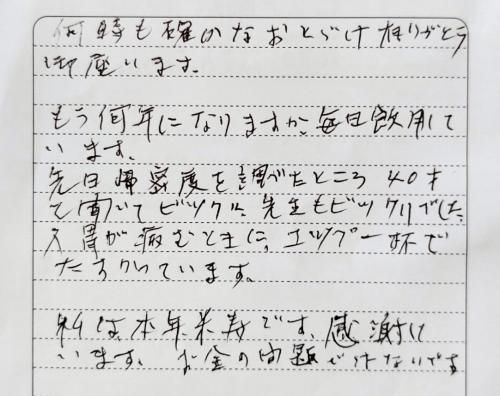 何時も確かなおとどけ有りがとう
御座います。
もう何年になりますか、毎日飲用して
います。
先日骨密度を調べたところ40才
と聞いてビックリ、先生もビックリでした、
又胃が痛むときに、コップ一杯で
たすかっています。
私は、本年米寿です、感謝して
います。お金の問題ではないです